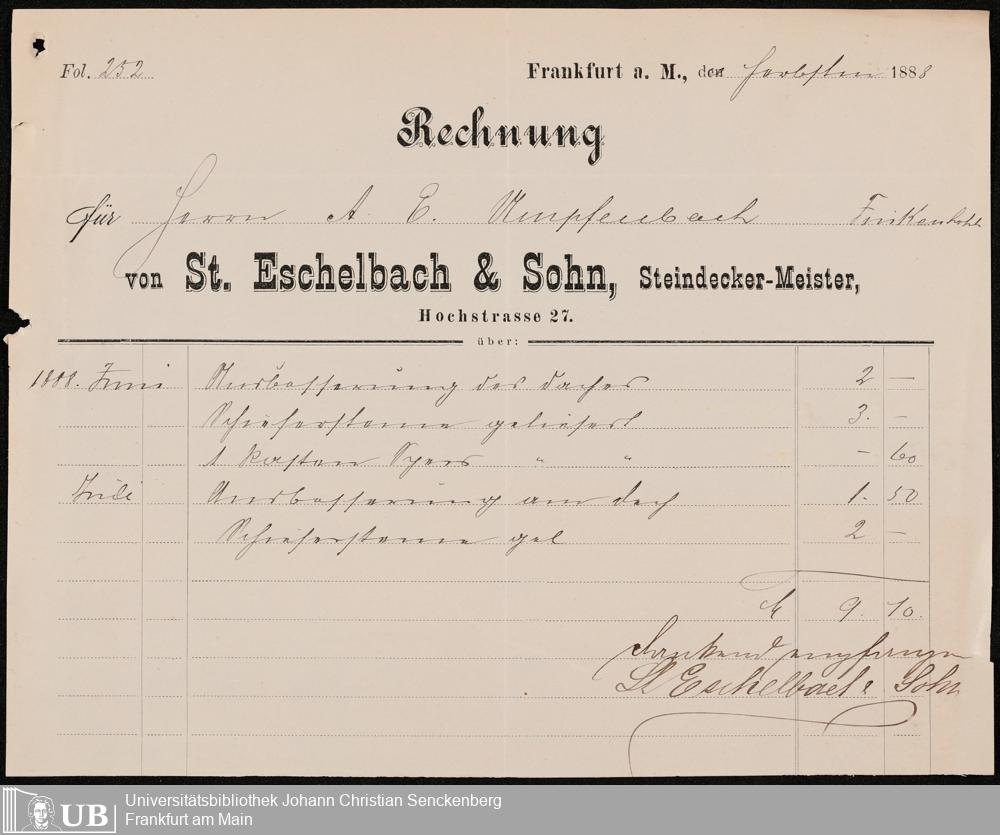 Fol. 252
Frankfurt a. M., den Herbsten 1888
Rechnung
für Herrn A. E. Umpfenbach
von St. Eschelbach & Sohn, Steindecker-Meister,
Hochstrasse 27.
über:
1888. Juni Ausbesserung des Daches 2 —
Schiefersteine geliefert 3. —
1 Kasten Speis " " — 60
Juli Ausbesserung am Dach 1. 50
Schiefersteine gel 2 —
M 9. 10.
dankend empfangen
St Eschelbach & Sohn
Universitätsbibliothek Johann Christian Senckenberg
UB Frankfurt am Main